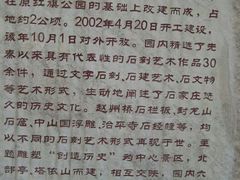 在原红旗公园的基础上改建而成,占
地约二公顷。2002年4月20日开工建设,
该年10月1日对外开放。园内精选了先
秦以来具有代表性的石刻艺术作品30
余件,通过文字石刻、石建艺术、石文特
等艺术形式,生动地阐述了石家庄悠
久的历史文化。赵州桥石栏板、封龙山
石窟、中山国浮雕、治平寺石经幢等,均
以不同的石刻艺术形式再现于世。主
题雕塑“创造历史”列中心景区,北
部亭、塔依山而建,相互交映,园内六